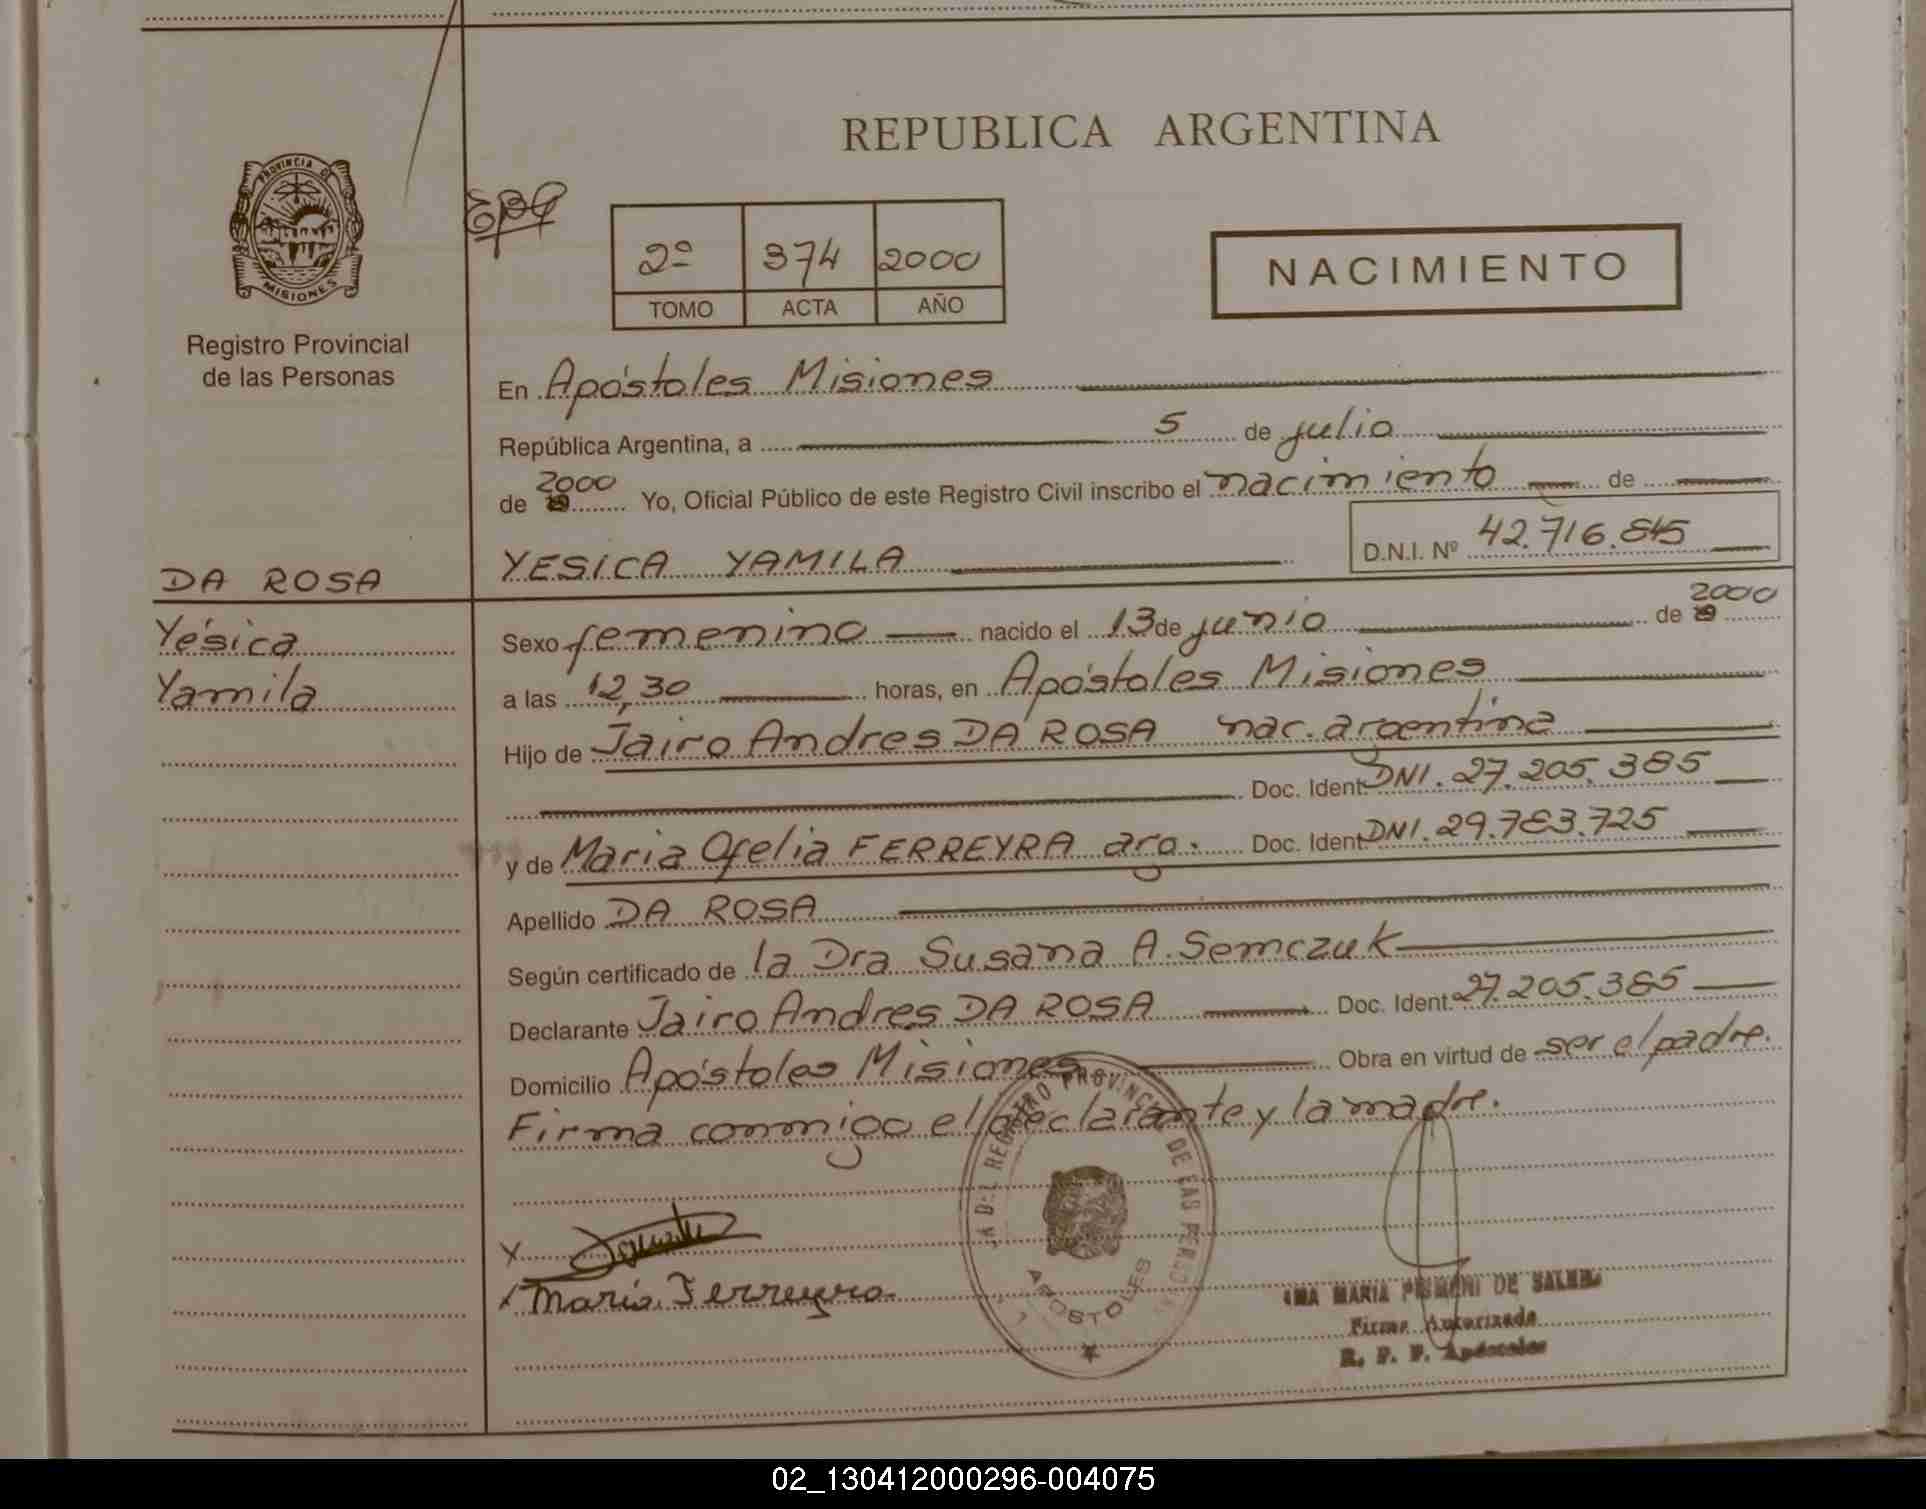 REPUBLICA ARGENTINA
PROVINCIA DE MISIONES
Registro Provincial
de las Personas
2º 374 2000
TOMO ACTA AÑO
NACIMIENTO
En Apóstoles Misiones
República Argentina, a 5 de julio
de 2000 Yo, Oficial Público de este Registro Civil inscribo el nacimiento de
D.N.I. Nº 42.716.845
YESICA YAMILA
DA ROSA
Yésica
Yamila
Sexo femenino nacido el 13 de junio de 2000
a las 12,30 horas, en Apóstoles Misiones
Hijo de Jairo Andres DA ROSA nac. argentina
Doc. Ident. DNI. 27.205.385
y de Maria Ofelia FERREYRA arg. Doc. Ident. DNI. 29.783.725
Apellido DA ROSA
Según certificado de la Dra Susana A. Semczuk
Declarante Jairo Andres DA ROSA Doc. Ident. 27.205.385
Domicilio Apóstoles Misiones Obra en virtud de ser el padre.
Firma conmigo el declarante y la madre.
REGISTRO PROVINCIAL DE LAS PERSONAS
APOSTOLES
X
Maria Ferreyra
MARIA DE
Firma Autorizada
R. P. P. Apóstoles
02_130412000296-004075